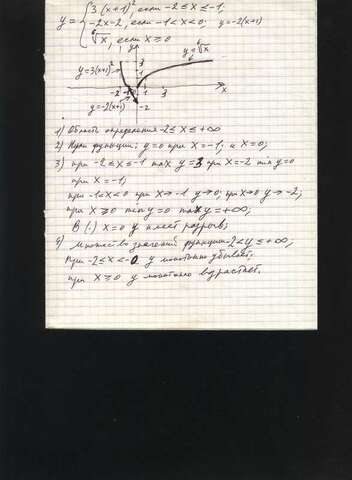 y = { 3(x+1)², если -2 ≤ x ≤ -1
-2x-2, если -1 < x < 0; y=-2(x+1)
⁶√x, если x ≥ 0
y
y=⁶√x
y=3(x+1)²
3
1
-2 -1 0 1 3 x
y=-2(x+1)
-2
1) Область определения -2 ≤ x ≤ +∞
2) Нули функции: y=0 при x=-1; и x=0;
3) при -2 ≤ x ≤ -1 max y=3 при x=-2 min y=0
при x=-1;
при -1<x<0 при x→-1 y→0; при x→0 y→-2;
при x ≥ 0 min y=0 max y=+∞;
В (·) x=0 y имеет разрыв;
4) множество значений функции -2<y≤+∞;
при -2≤x<0 y монотонно убывает;
при x ≥ 0 y монотонно возрастает.